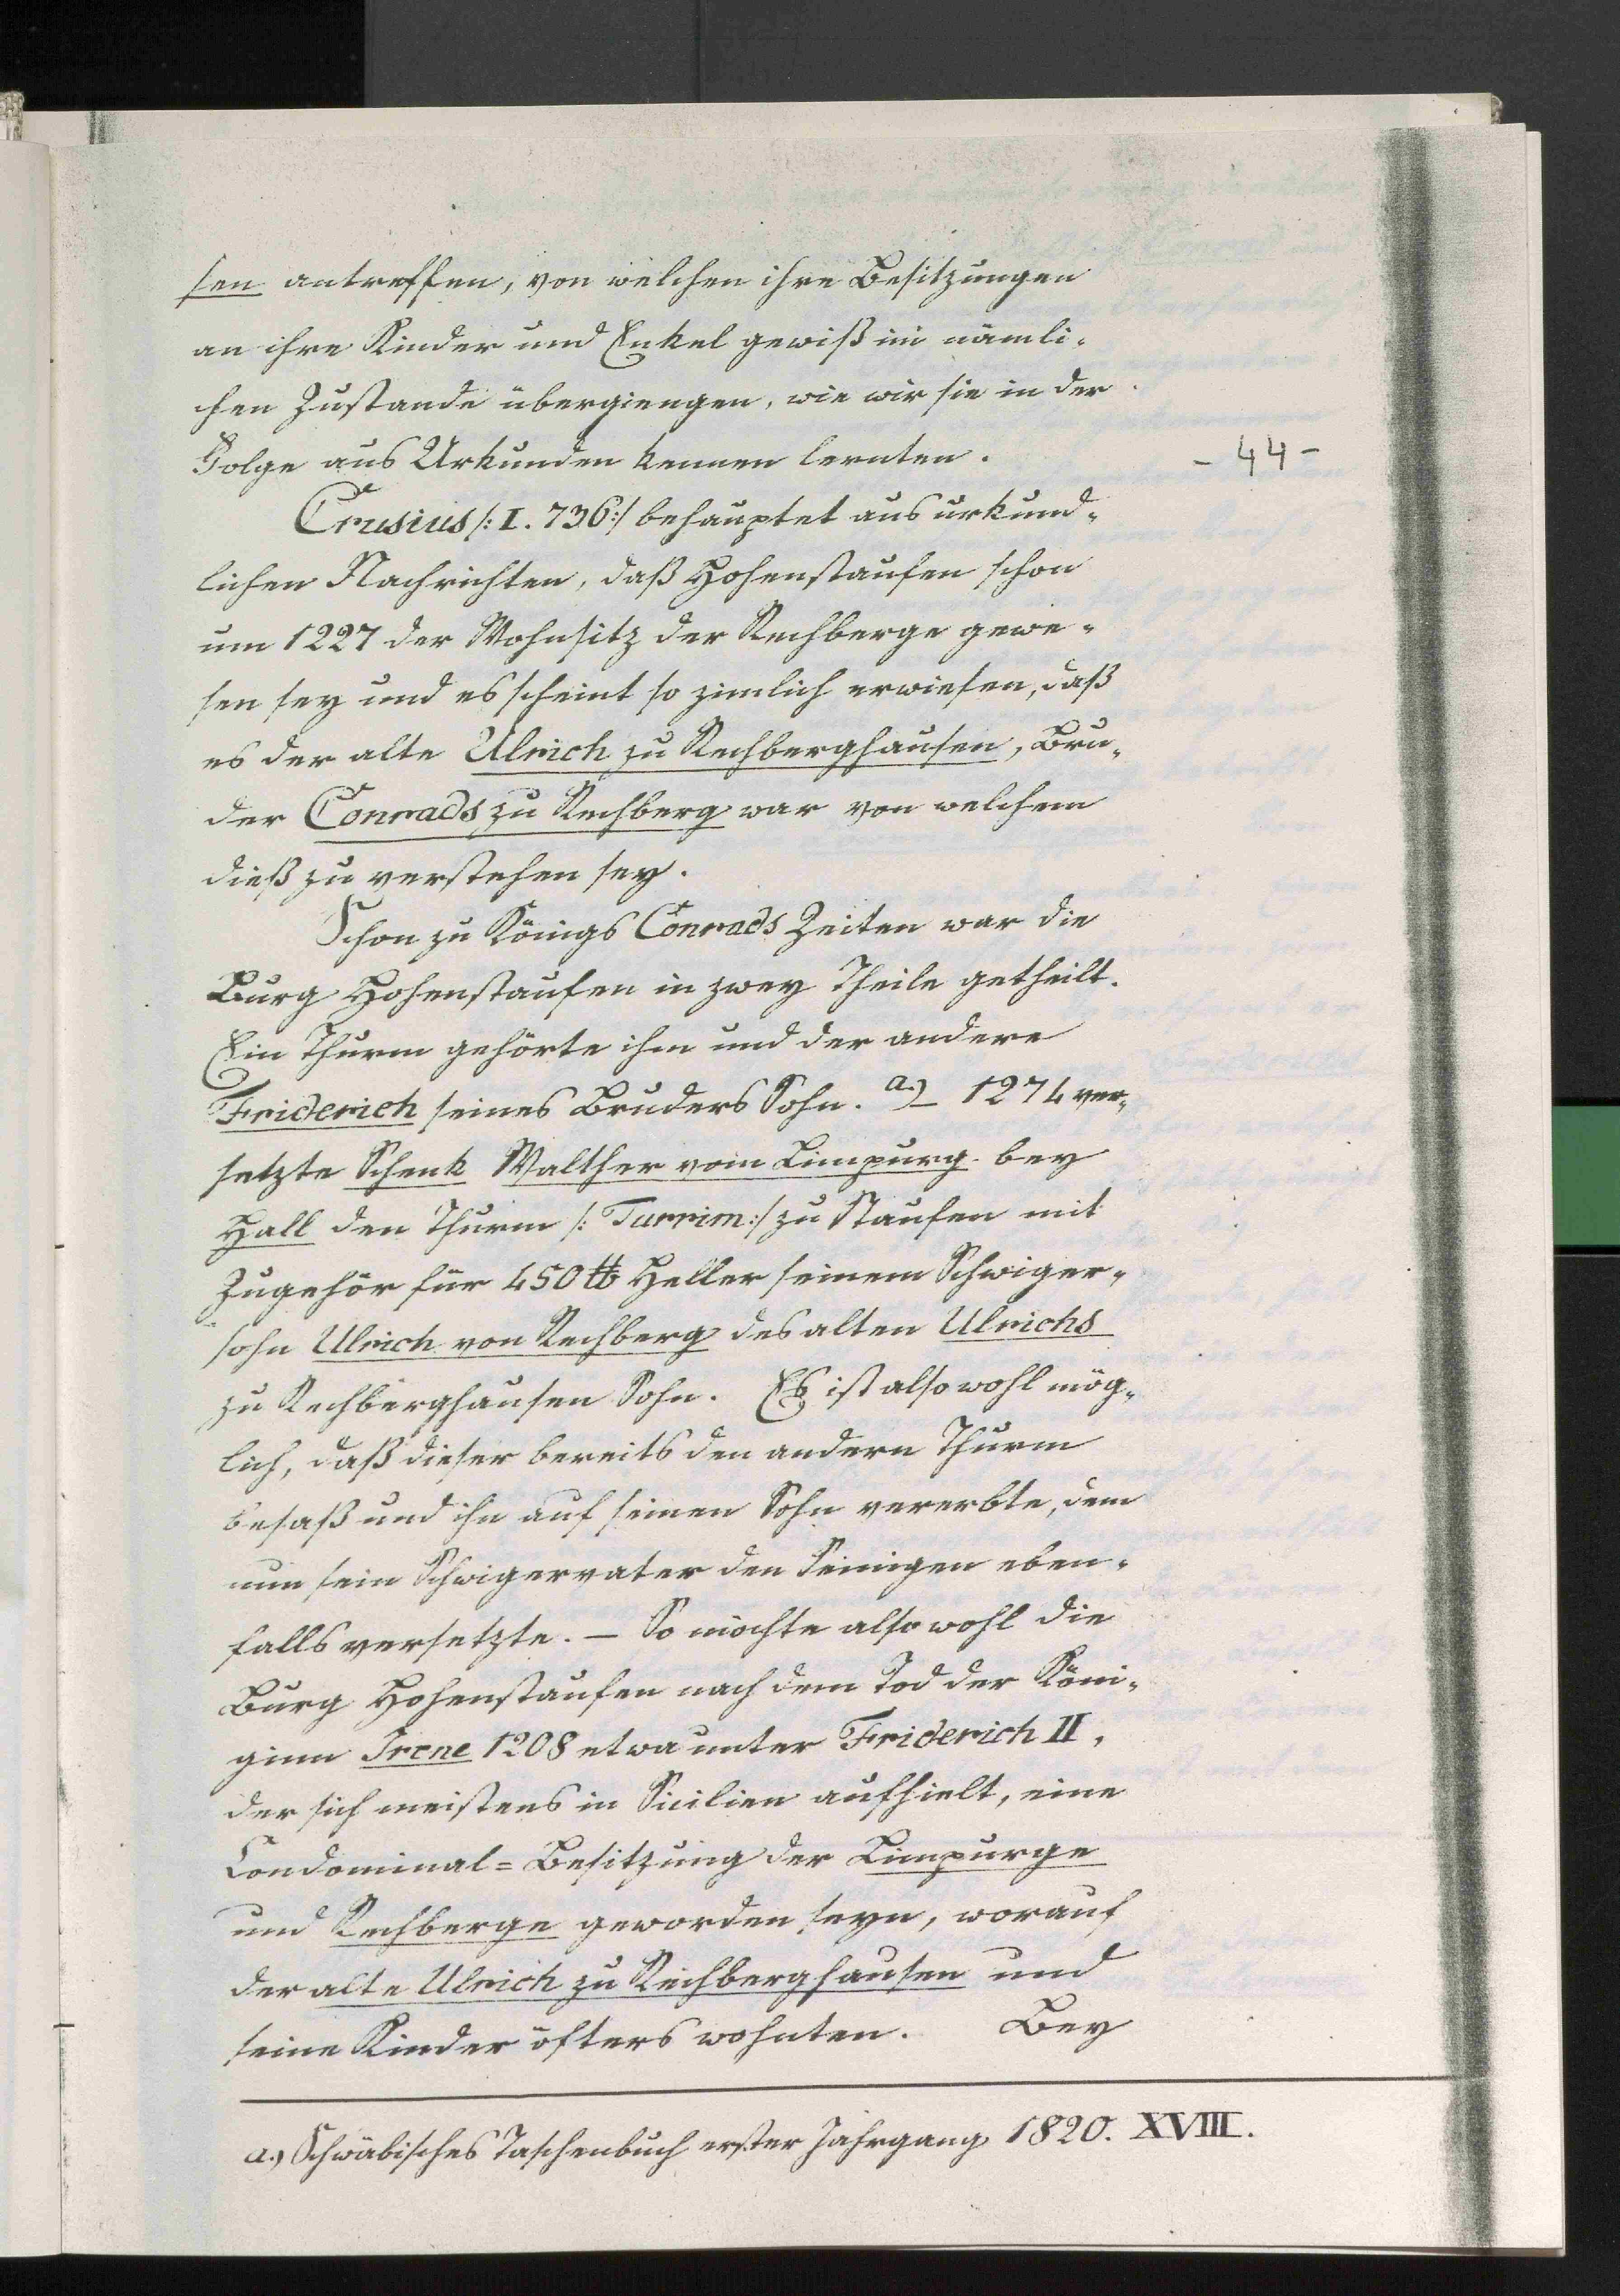 sen antreffen, von welchen ihre Besitzungen
an ihre Kinder und Enkel gewiß im nämli-
chen Zustande übergiengen, wie wir sie in der
Folge aus Urkunden kennen lernten.
- 44 -
Crusius /: I. 736:/ behauptet aus urkund-
lichen Nachrichten, daß Hohenstaufen schon
um 1227 der Wohnsitz der Rechberge gewe-
sen sey und es scheint so zimlich erwiesen, daß
es der alte Ulrich zu Rechberghausen, Bru-
der Conrads zu Rechberg war von welchem
dieß zu verstehen sey.
Schon zu Königs Conrads Zeiten war die
Burg Hohenstaufen in zwey Theile getheilt.
Ein Thurm gehörte ihm und der andere
Friderich seines Bruders Sohn. a.) – 1274 ver-
setzte Schenk Walther vom Limpurg bey
Hall den Thurm /: Turrim:/ zu Staufen mit
Zugehör für 450 ℔ Heller seinem Schwiger-
sohn Ulrich von Rechberg des alten Ulrichs
zu Rechberghausen Sohn. Es ist also wohl mög-
lich, daß dieser bereits den andern Thurm
besaß und ihn auf seinen Sohn vererbte, dem
nun sein Schwigervater den Seinigen eben-
falls versetzte. – So möchte also wohl die
Burg Hohenstaufen nach dem Tod der Köni-
ginn Irene 1208 etwa unter Friderich II,
der sich meistens in Sicilien aufhielt, eine
Condominal=Besitzung der Limpurge
und Rechberge geworden seyn, worauf
der alte Ulrich zu Rechberghausen und
seine Kinder öfters wohnten. Bey
a.) Schwäbisches Taschenbuch erster Jahrgang 1820. XVIII.